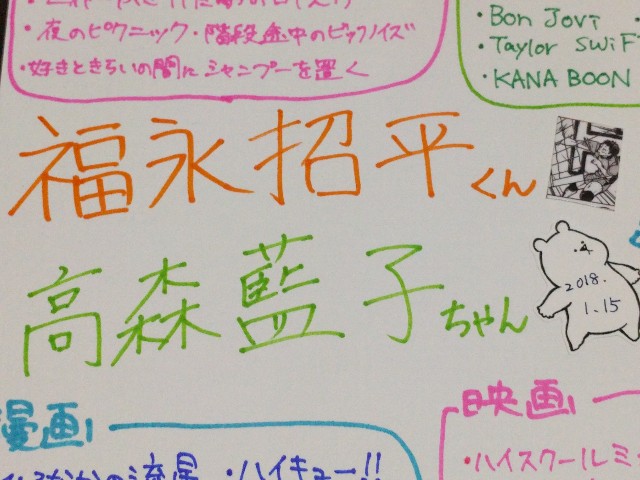 ・夜のピクニック・階段途中のビッグノイズ
・好きときらいの間にシャンプーを置く
・Bon Jovi
・Taylor SWiFT
・KANA BOON
福永招平くん
高森藍子ちゃん
2018.
1.15
漫画
映画
の流星 ・ハイキュー!!
・ハイスクールミ